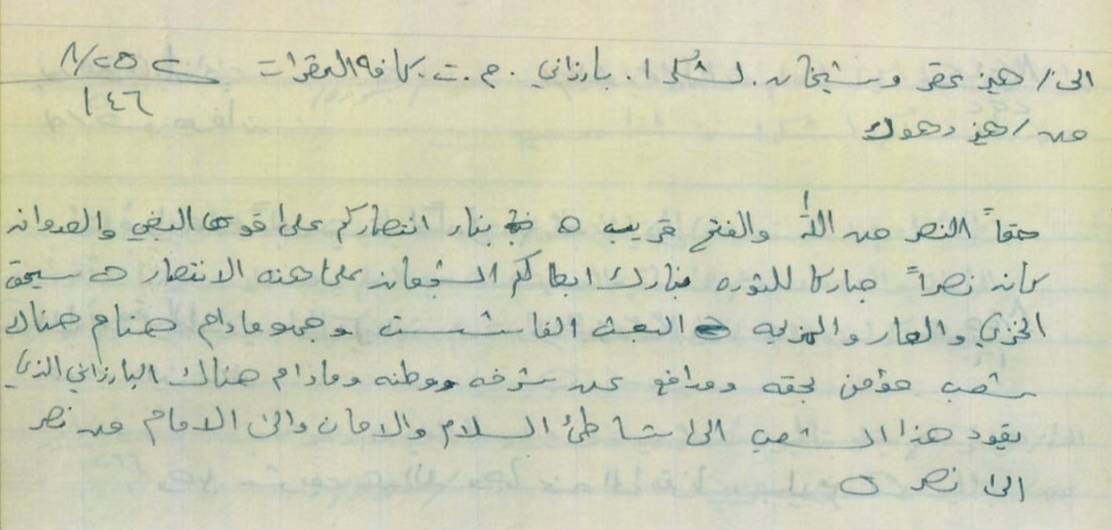 الى/ هيز عقره وشيخان. لشكر ١. بارزاني. م.ت. كافة المقرات
٨/٢٥
١٤٦
من/ هيز دهوك
حقاً النصر من الله والفتح قريب بنار انتصاركم على قوى البغي والعدوان
كانه نصراً مباركا للثوره نبارك ابطالكم الشجعان على هذه الانتصار سيحق
الخزي والعار والهزيمه البعث الفاشست ومادام هناك
شعب مؤمن بحقه ومدافع عن شرفه ووطنه ومادام هناك البارزاني الذي
يقود هذا الشعب الى شاطئ السلام والامان والى الامام من نصر
الى نصر